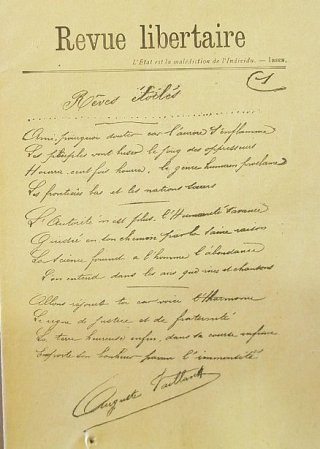 Revue libertaire
L'Etat est la malédiction de l'Individu. — IBSEN.
Rêves étoilés
Ami, pourquoi douter car l'aurore s'enflamme
Les peuples vont briser le joug des oppresseurs
Hourra cent fois hourra, le genre humain proclame
Les frontières bas et les nations sœurs
L'Autorité n'est plus, l'Humanité s'avance
Guidée en son chemin par la saine raison
La Science fournit à l'homme l'abondance
L'on entend dans les airs que rires et chansons
Allons réjouis toi car voici l'Harmonie
Le règne de justice et de fraternité
La terre heureuse enfin, dans sa course infinie
Emporte son bonheur parmi l'immensité
Auguste Vaillant